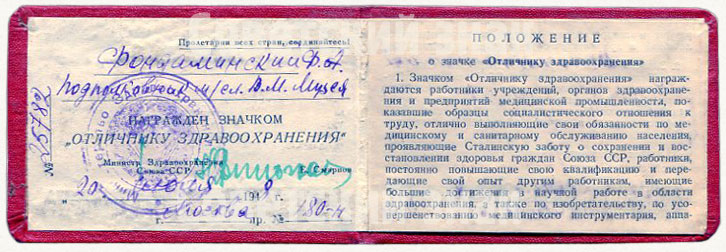 Пролетарии всех стран, соединяйтесь!
Фондаминский
подполковник м/сл. В.М. Музея
НАГРАЖДЕН ЗНАЧКОМ
„ОТЛИЧНИКУ ЗДРАВООХРАНЕНИЯ"
Министр Здравоохранения
Союза ССР Е. Смирнов
20 июня 194
Москва
г. пр. № 180-н
№ 25782
ПОЛОЖЕНИЕ
о значке «Отличнику здравоохранения»
1. Значком «Отличнику здравоохранения» награж-
даются работники учреждений, органов здравоохране-
ния и предприятий медицинской промышленности, по-
казавшие образцы социалистического отношения к
труду, отлично выполняющие свои обязанности по ме-
дицинскому и санитарному обслуживанию населения,
проявляющие Сталинскую заботу о сохранении и вос-
становлении здоровья граждан Союза ССР, работники,
постоянно повышающие свою квалификацию и пере-
дающие свой опыт другим работникам, имеющие
большие достижения в научной работе в области
здравоохранения, а также по изобретательству, по усо-
вершенствованию медицинского инструментария, аппа-